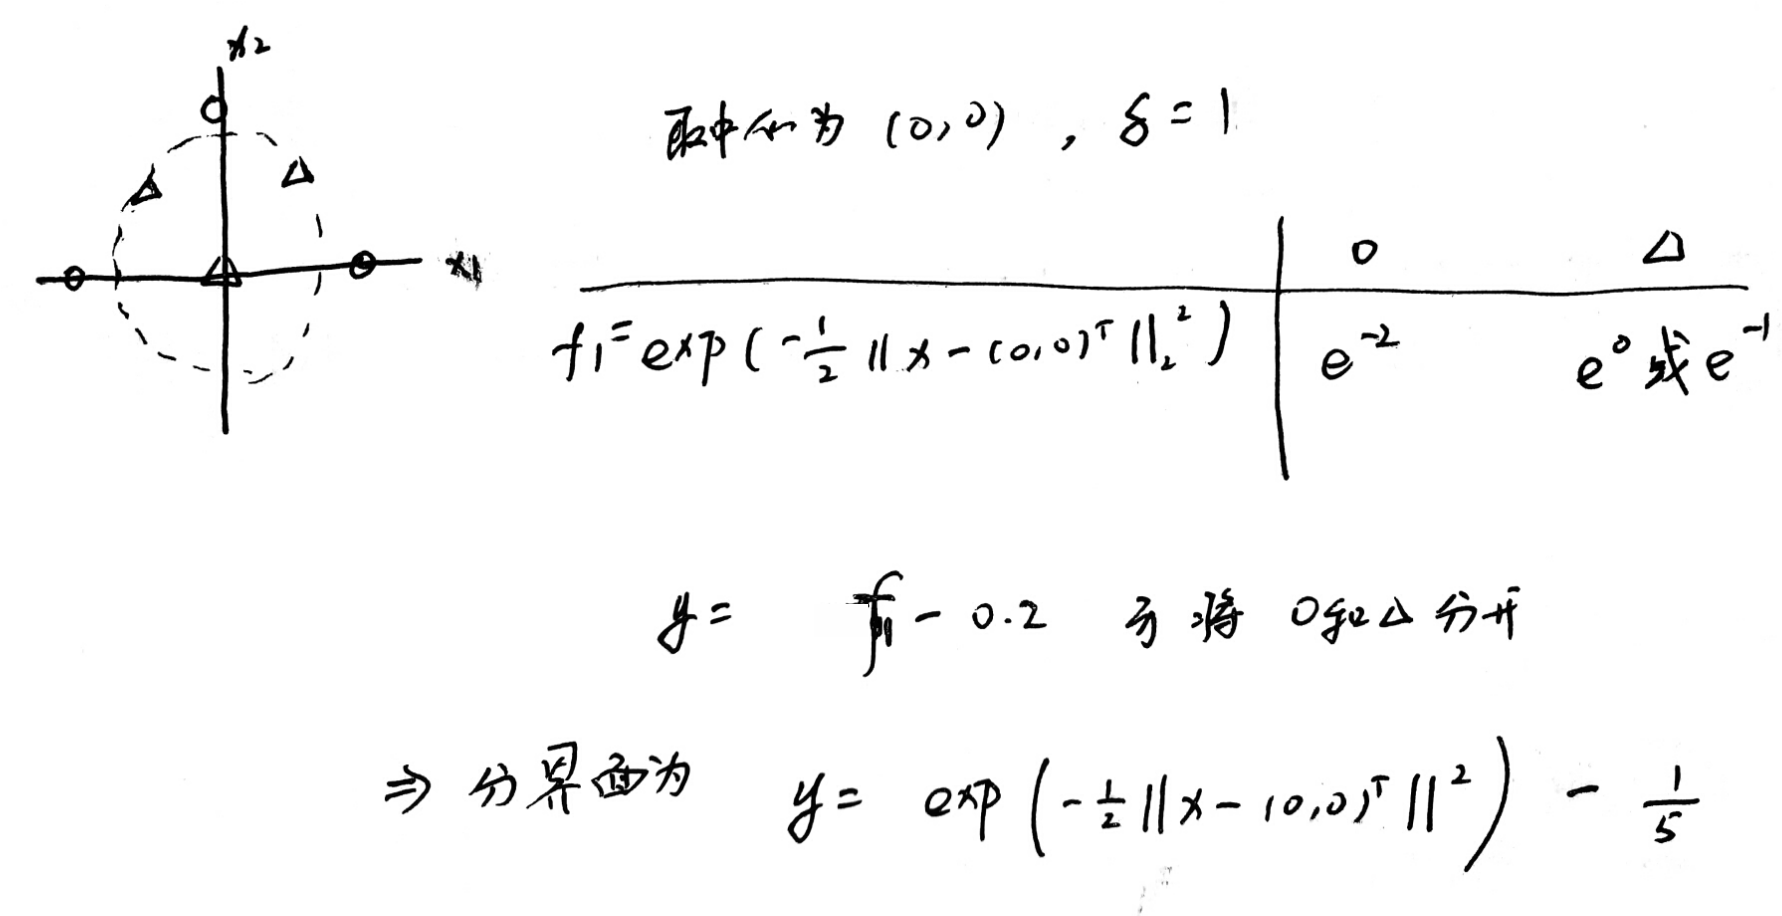 x2
取中心为 (0,0) , δ = 1
x1
o △
f1 = exp(-1/2 ||x-(0,0)^T||_2^2) e^-2 e^0 或 e^-1
y = f1 - 0.2 可将 o和△ 分开
⇒ 分界面为 y = exp(-1/2 ||x-(0,0)^T||^2) - 1/5